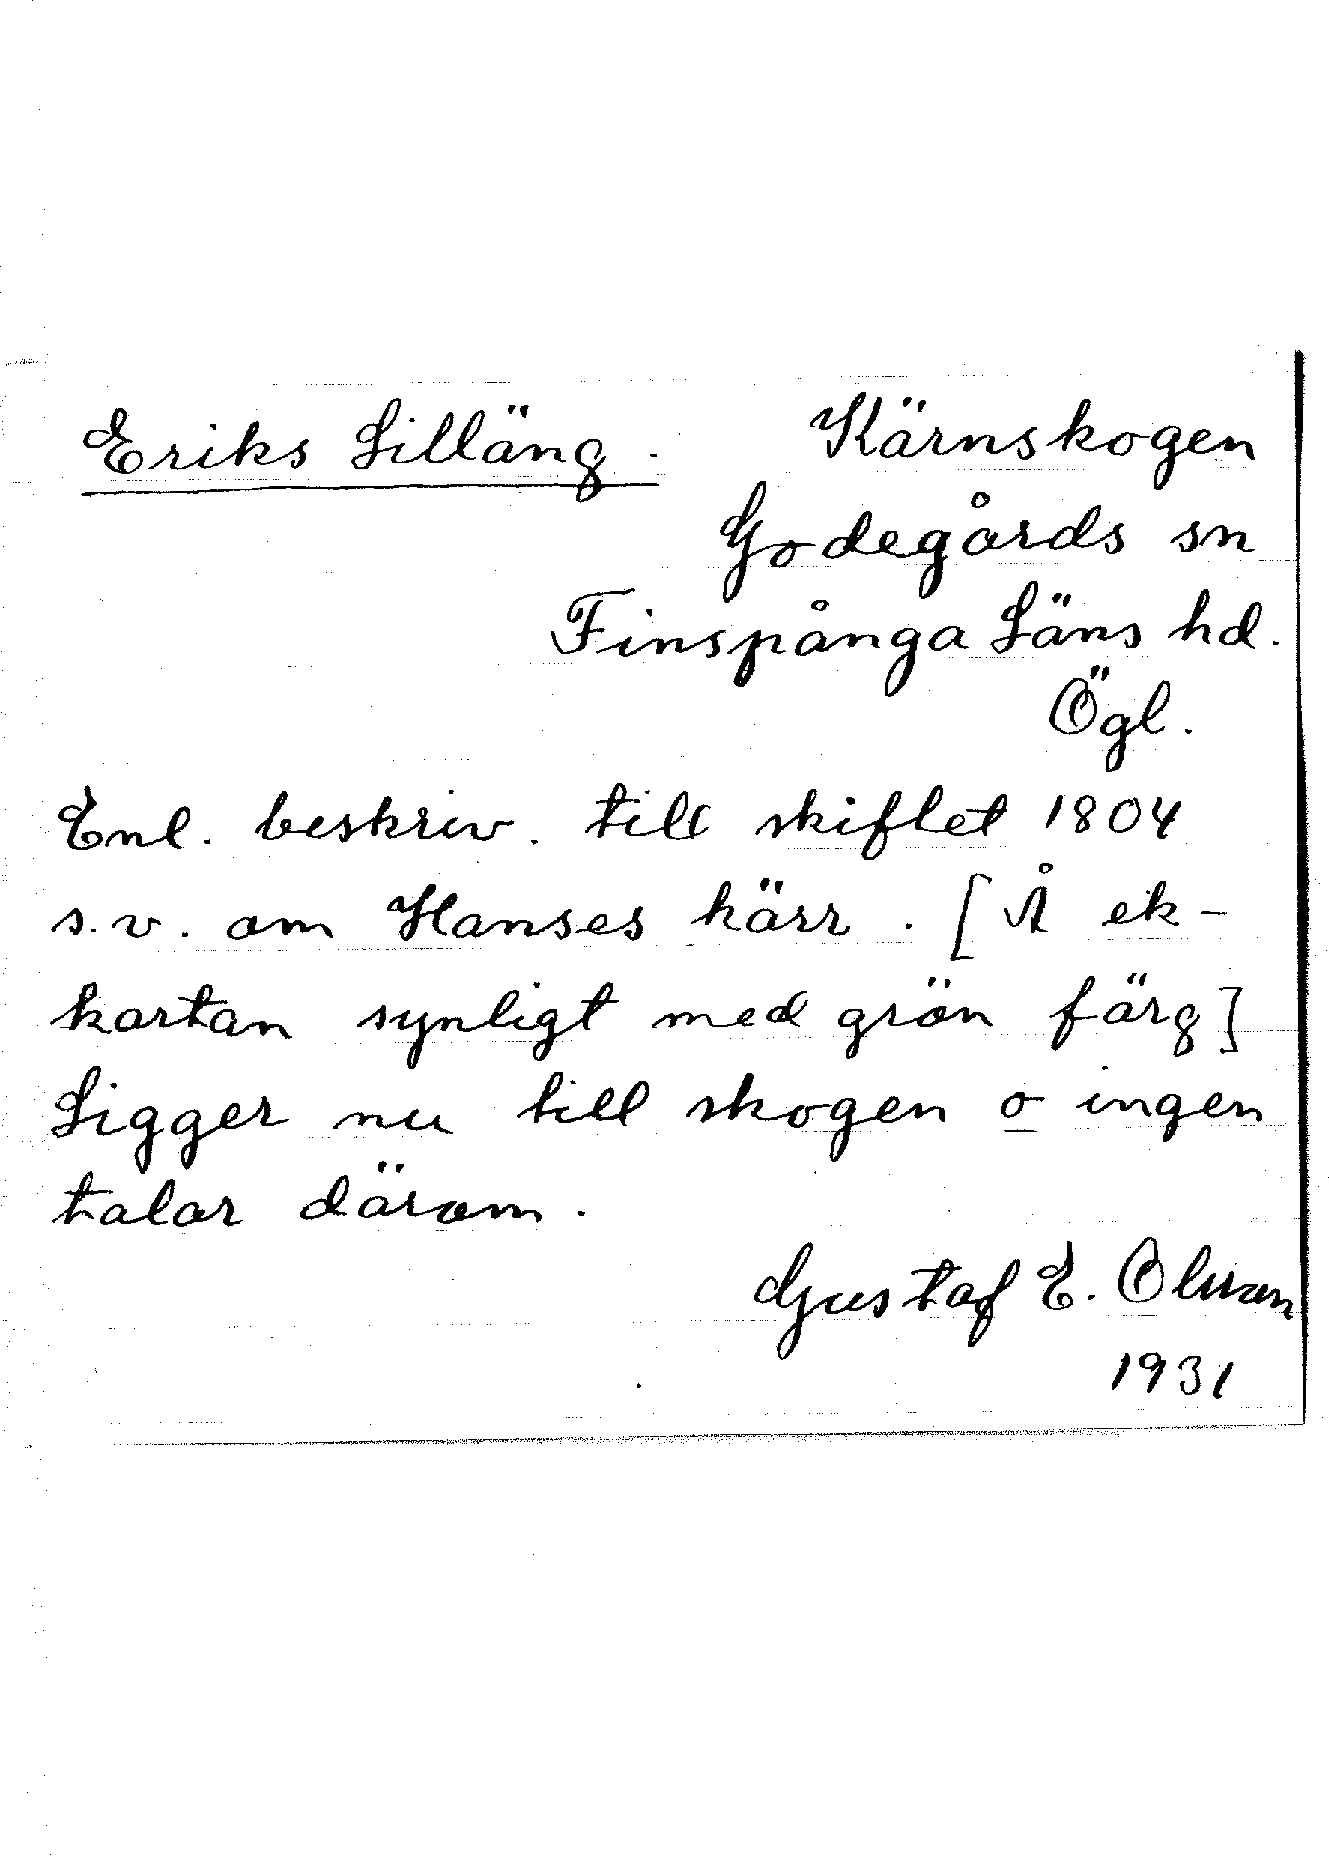 Eriks Lilläng. Kärnskogen
Godegårds sn
Finspånga Läns hd.
Ögl.
Enl. beskriv. till skiftet 1804
s.v. om Hanses kärr. [Å ek-
kartan synligt med grön färg]
Ligger nu till skogen o ingen
talar därom.
Gustaf E. Olsson
1931